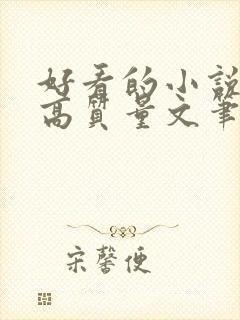 好看的小說
高質量文筆
宋馨便